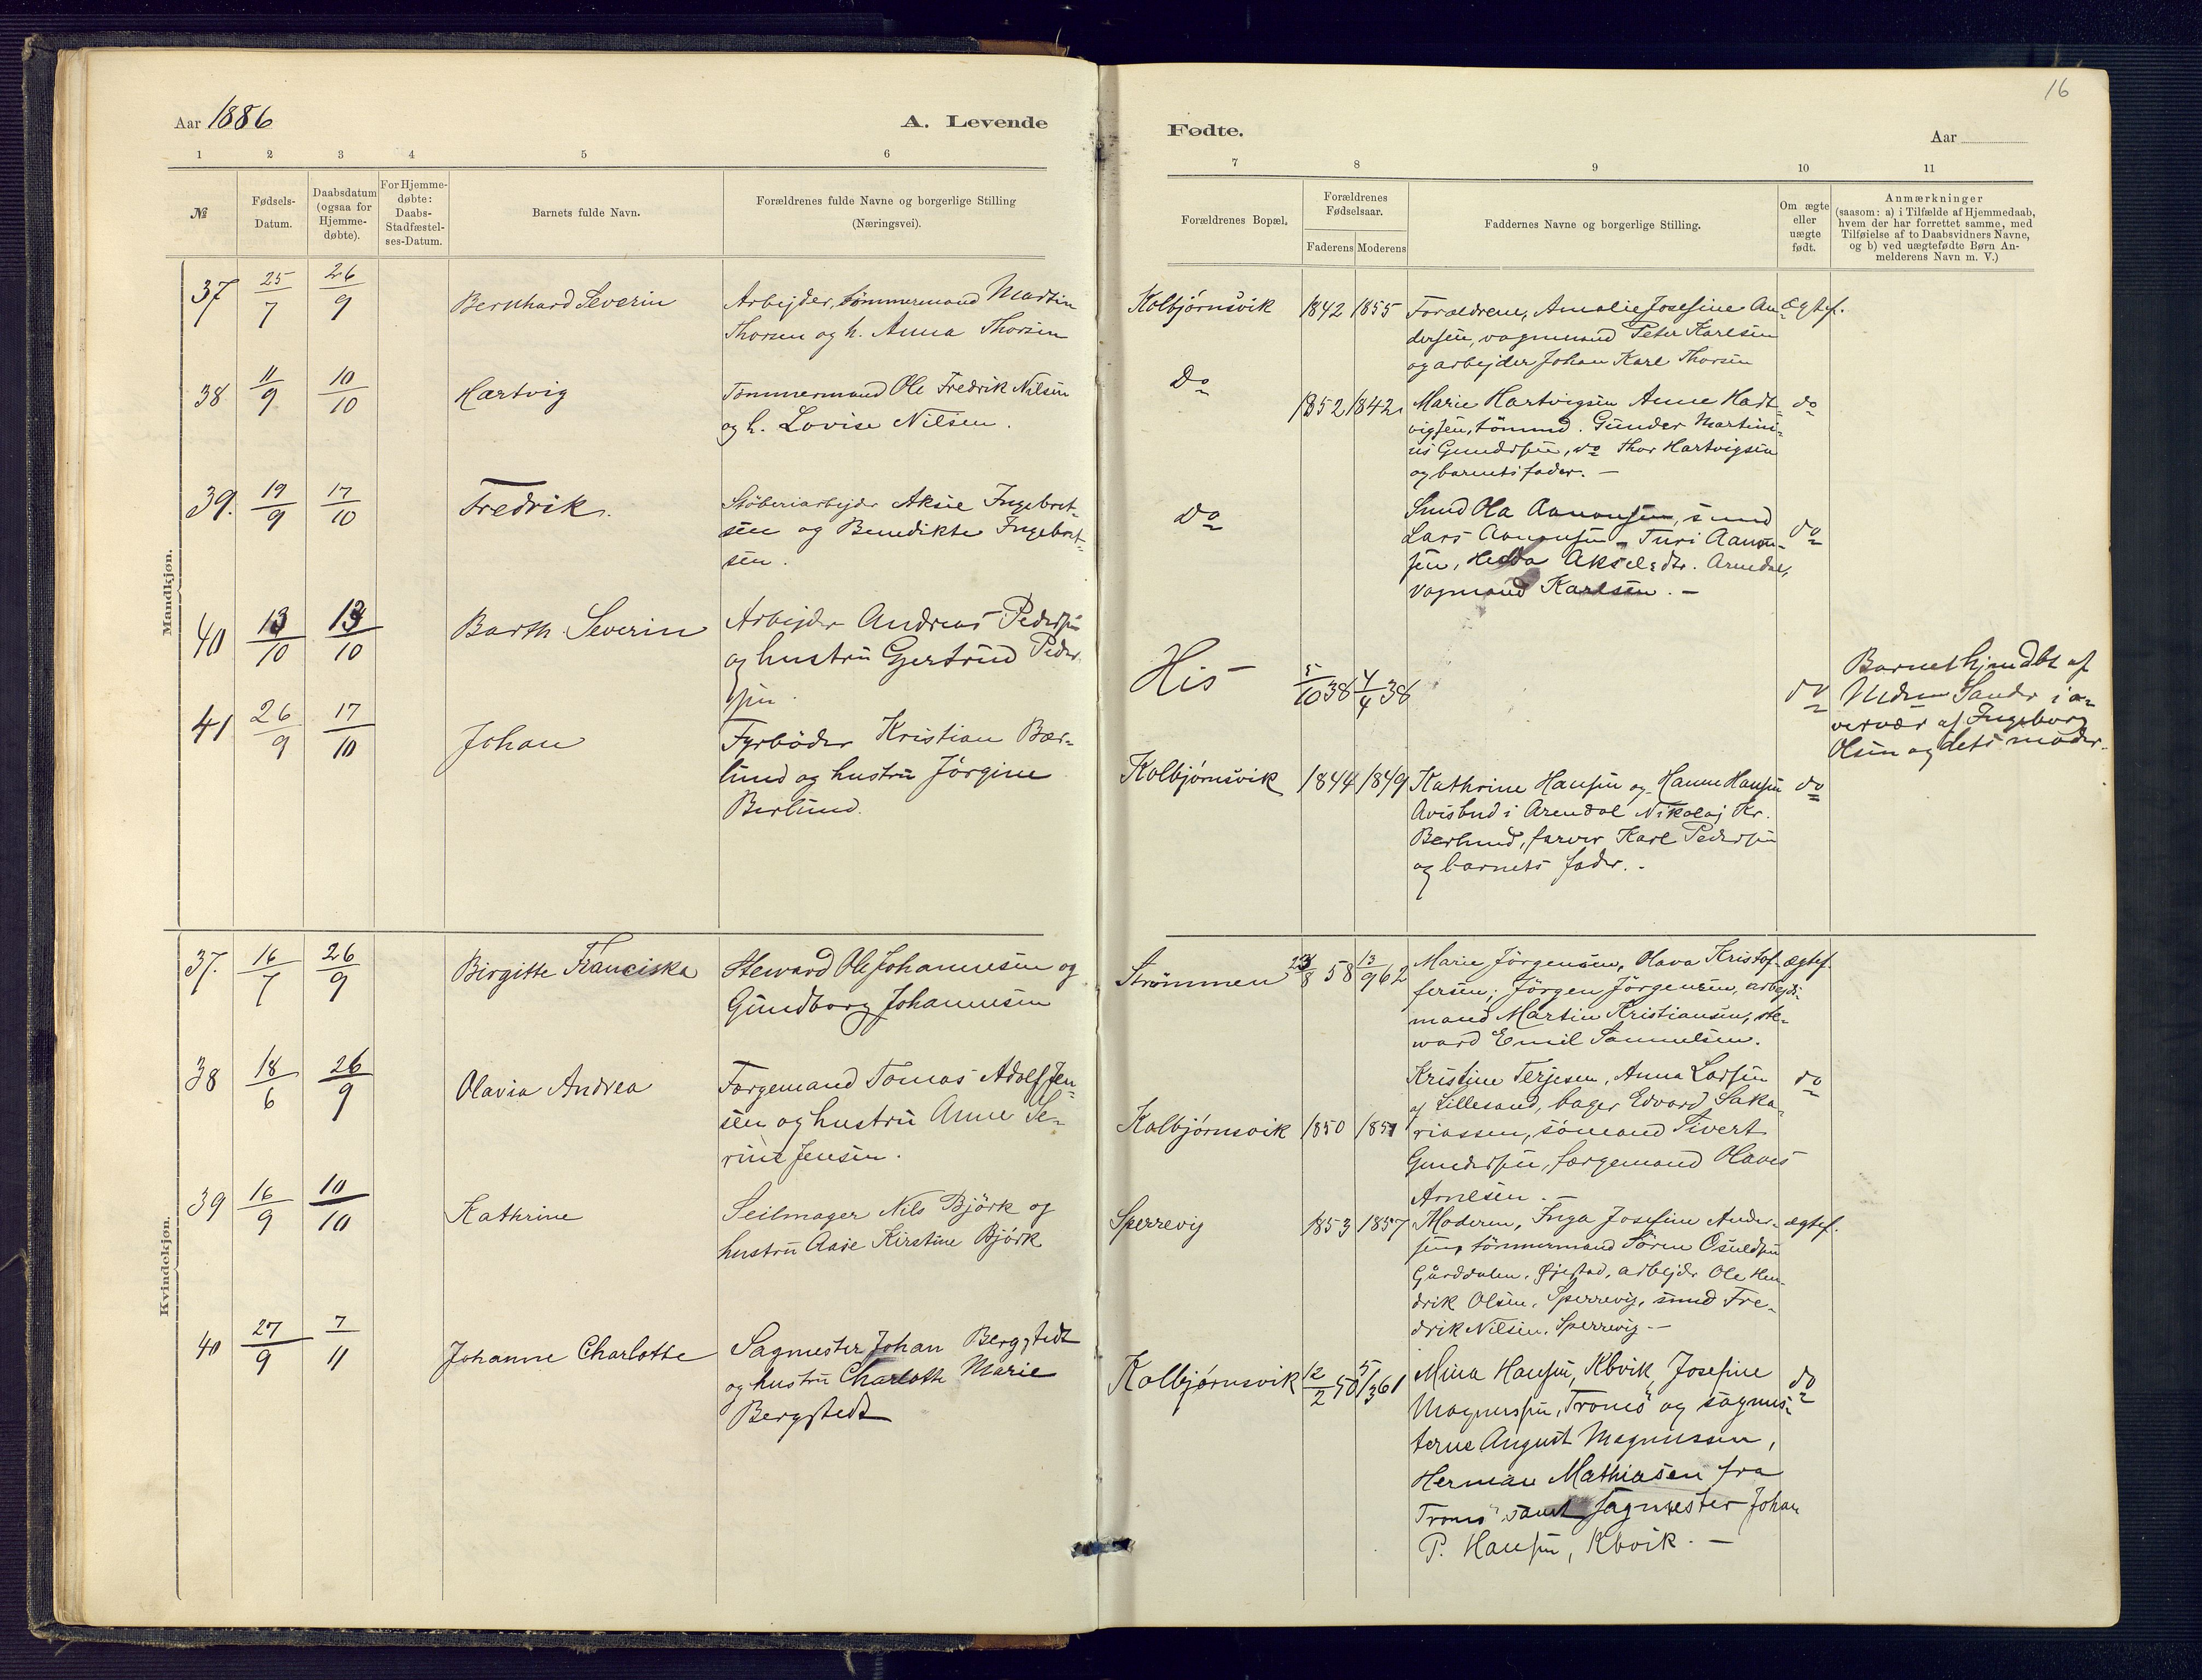 Aar 1886
A. Levende
1 2 3 4 5 6
№
Fødsels-
Datum.
Daabsdatum
(ogsaa for
Hjemme-
døbte).
For Hjemme-
døbte:
Daabs-
Stadfæstel-
ses-Datum.
Barnets fulde Navn.
Forældrenes fulde Navne og borgerlige Stilling
(Næringsvei).
Mandkjøn.
37 25/7 26/9 Bernhard Severin
Arbejder, tömmermand Martin
Thorsen og h. Anna Thorsen
38 11/9 10/10 Hartvig
Tømmermand Ole Fredrik Nilsen
og h. Lovise Nilsen.
39. 19/9 17/10 Fredrik.
Støberiarbejder Aksie Ingebret-
sen og Benedikte Ingebret-
sen.
40 13/10 13/10 Barth. Severin
Arbejder Andreas Pedersen
og hustru Gjertrud Peder-
sen.
41 26/9 17/10 Johan
Fyrbøder Kristian Bær-
lund og hustru Jörgine
Berlund.
Kvindekjøn.
37. 16/7 26/9 Birgitte Franciska
Steward Ole Johannesen og
Gundborg Johannesen
38 18/6 26/9 Olavia Andrea
Færgemand Tomas Adolf Jen-
sen og hustru Anne Se-
rine Jensen.
39 16/9 10/10 Kathrine
Seilmager Nils Björk og
hustru Aase Kirstine Björk
40 27/9 7/11 Johanne Charlotte
Sagmester Johan Bergstedt
og hustru Charlotte Marie
Bergstedt
16
Fødte.
Aar
7 8 9 10 11
Forældrenes Bopæl.
Forældrenes
Fødselsaar.
Faderens Moderens
Faddernes Navne og borgerlige Stilling.
Om ægte
eller
uægte
født.
Anmærkninger
(saasom: a) i Tilfælde af Hjemmedaab,
hvem der har forrettet samme, med
Tilføielse af to Daabsvidners Navne,
og b) ved uægtefødte Børn An-
melderens Navn m. V.)
Kolbjørnsvik 1842 1855 Forældrene, Amalie Josefine An- Ægtef.
dersen, vognmand Peter Karlsen
og arbejder Johan Karl Thorsen
Do 1852 1842 Marie Hartvigsen Anne Hart- do
vigsen, tömmd. Gunder Martini-
us Gundersen, do Thor Hartvigsen
og barnets fader. —
Do
Smed Ola Aanonsen, smed
Lars Aanonsen, Turi Aanon- do
sen, Hedda Akselsdtr. Arendal,
vognmand Karlsen. —
His 5/10 38 4/4 38 do
Barnet hjmdbt af
Sander i o-
vervær af Ingeborg
Olsen og dets moder.
Kolbjørnsvik 1844 1849 Kathrine Hansen og Hanne Hansen do
Avisbud i Arendal Nikolaj Kr.
Berlund, farver Karl Pedersen
og barnets fader. -
Strømmen 23/8 58 13/9 62 Marie Jörgensen, Olava Kristof- ægtef.
fersen; Jörgen Jörgensen, arbejds-
mand Martin Kristiansen, ste-
ward Emil Samuelsen.
Kristine Terjesen, Anna Larsen do
af Lillesand, bager Edvard Saka-
Kolbjørnsvik 1850 1851 riassen, sömand Sivert
Gundersen, færgemand Olaves
Arnesen. —
Sperrevig 1853 1857 Moderen, Inga Josefine Ander- ægtef.
sen, tömmermand Sören Osuldsen
Gårddalen. Øjestad, arbejder Ole Hen-
drik Olsen, Sperrevig, smed Fre-
drik Nilsen, Sperrevig —
Kolbjørnsvik 12/2 50 5/3 61 Mina Hansen, Kbvik, Josefine do
Magnussen, Tromö og sagmes-
terne August Magnussen,
Herman Mathiasen fra
Tromö samt sagmester Johan
P. Hansen, Kbvik. —